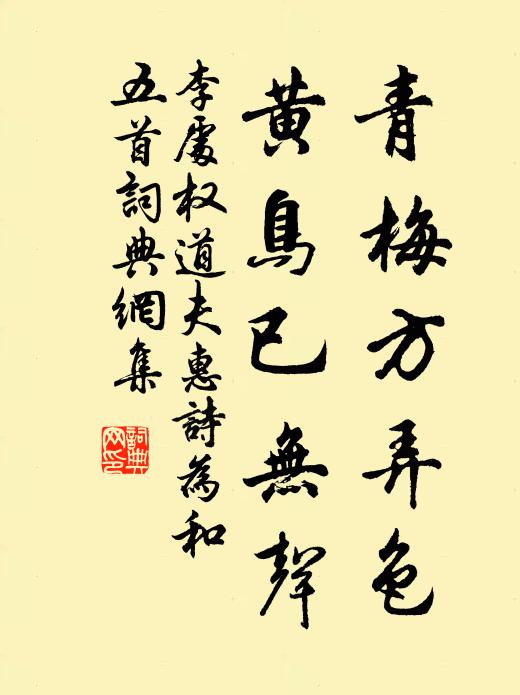 青梅方弄色
黃鳥已無聲
李處权道夫惠詩為和
五首詞典網集
詞典網印